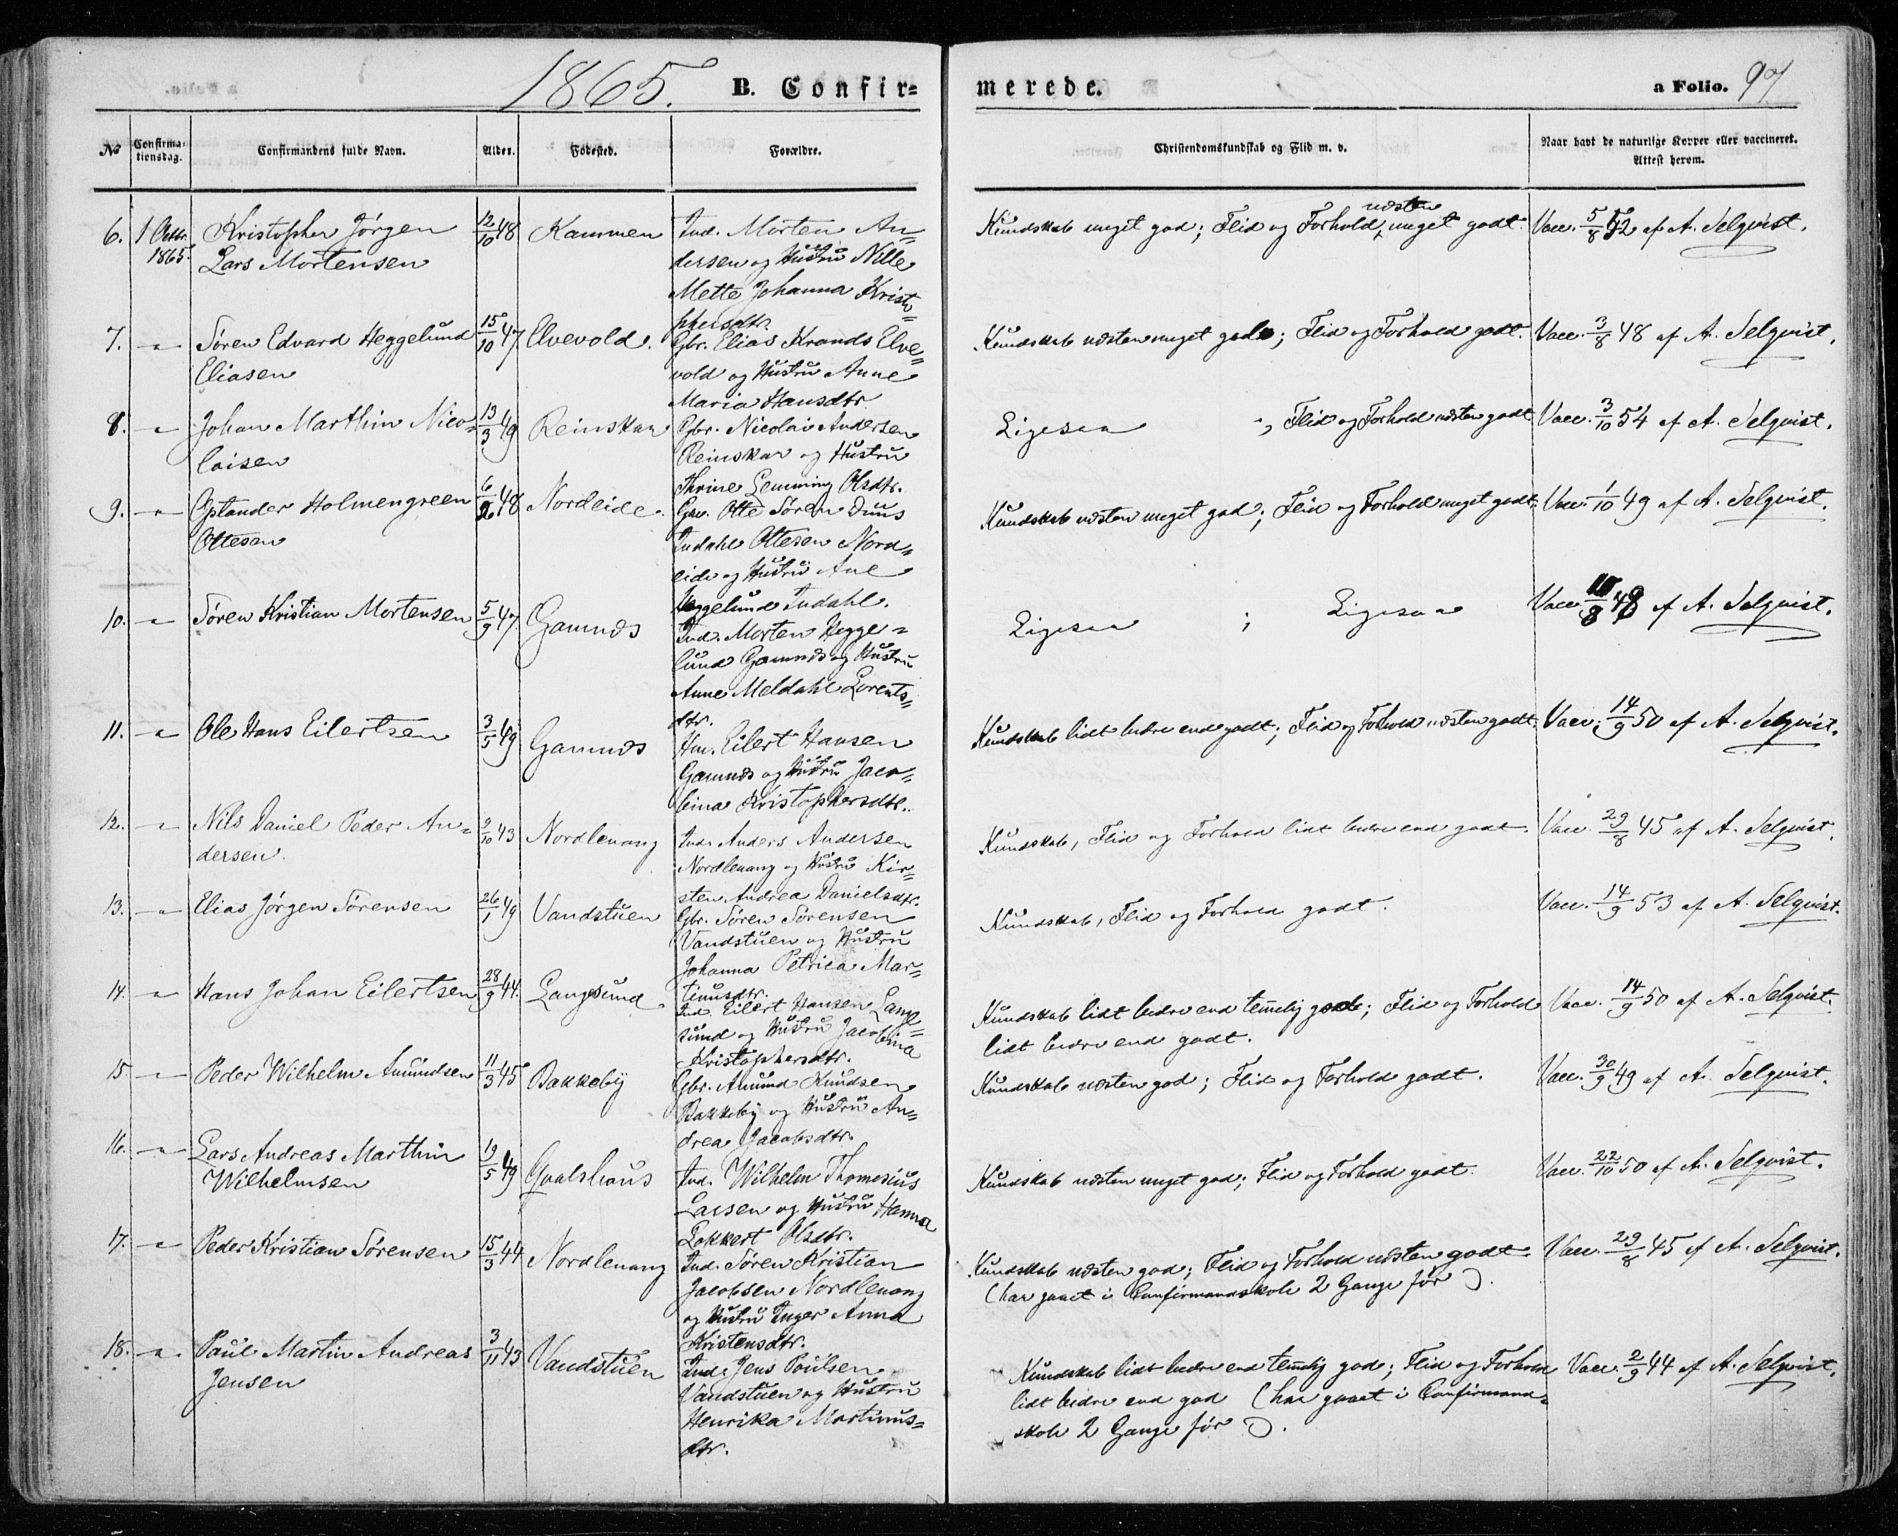 1865. B. Confirmerede. a Folio. 97
No Confirmationsdag. Confirmandens fulde Navn. Alder. Fødested. Forældre. Christendomskundskab og Flid m. v. Naar havt de naturlige Kopper eller vaccineret. Attest herom.
6. 1 Octbr. 1865. Kristopher Jørgen 12/10 48 Kammen Ind. Morten An- Kundskab meget god; Flid og Forhold næsten meget godt. Vacc. 5/8 52 af A. Selqvist.
Lars Mortensen dersen og Hustru Nille
Mette Johanna Kristo-
phersdtr.
7. " Søren Edvard Heggelund 15/10 47 Elvevold. Gbr. Elias Krands Elve- Kundskab næsten meget god; Flid og Forhold godt. Vacc. 3/8 48 af A. Selqvist.
Eliasen vold og Hustru Anne
Maria Hansdtr
8. " Johan Marthin Nico- 13/3 49 Reinskar Gbr. Nicolai Andersen Ligesaa ; Flid og Forhold næsten godt Vacc. 3/10 54 af A. Selqvist.
laisen Reinskar og Hustru
Thrine Lemming Olsdtr.
9. " Holmengreen 48 Nordeide. Otte Søren Duus Kundskab næsten meget god; Flid og Forhold meget godt. Vacc. 1/10 49 af A. Selqvist.
Ottesen Indahl Ottesen Nord-
eide og Hustru Ane
Heggelund Indahl.
10. " Søren Kristian Mortensen 5/9 47 Gamnæs Ind. Morten Hegge- Ligesaa ; Ligesaa Vacc. 48 af A. Selqvist.
lund Gamnæs og Hustru
Anne Meldahl Lorents-
dtr.
11. " Ole Hans Eilertsen 3/5 49 Gamnæs Eilert Hansen Kundskab lidt bedre end godt; Flid og Forhold næsten godt. Vacc. 14/9 50 af A. Selqvist.
Gamnæs og Hustru Jaco-
bina Kristophersdtr.
12. " Nils Daniel Peder An- 43 Nordlenang Ind. Anders Andersen Kundskab, Flid og Forhold lidt bedre end godt. Vacc. 29/8 45 af A. Selqvist.
dersen. Nordlenang og Hustru Kir-
sten Andrea Danielsdtr.
13. " Elias Jørgen Sørensen 26/1 49 Vandstuen Gbr. Søren Sørensen Kundskab, Flid og Forhold godt. Vacc. 14/9 53 af A. Selqvist.
Vandstuen og Hustru
Johanna Petrica Mar-
tinusdtr.
14. " Hans Johan Eilertsen 28/9 44. Langsund. Ind. Eilert Hansen Lang- Kundskab lidt bedre end temelig god; Flid og Forhold Vacc. 14/9 50 af A. Selqvist.
sund og Hustru Jacobina lidt bedre end godt.
Kristophersdtr.
15 " Peder Wilhelm Amundsen 11/3 45 Bakkeby Gbr. Amund Knudsen Kundskab næsten god; Flid og Forhold godt. Vacc. 30/9 49 af A. Selqvist.
Bakkeby og Hustru An-
drea Jacobsdtr.
16. " Lars Andreas Marthin 19/5 49 Gaalshaus Ind. Wilhelm Thomesius Kundskab næsten meget god; Flid og Forhold godt. Vacc. 22/10 50 af A. Selqvist.
Wilhelmsen Larsen og Hustru Hanna
Lokkert Olsdtr.
17. " Peder Kristian Sørensen 15/3 44 Nordlenang Ind. Søren Kristian Kundskab næsten god; Flid og Forhold næsten godt. Vacc. 29/8 45 af A. Selqvist.
Jacobsen Nordlenang (har gaaet i Confirmandskole 2 Gange før).
og Hustru Inger Anna
Kristensdtr.
18. " Paul Martin Andreas 3/11 43 Vandstuen Ind. Jens Poulsen Kundskab lidt bedre end temelig god; Flid og Forhold Vacc. 2/9 44 af A. Selqvist.
Jensen Vandstuen og Hustru lidt bedre end god (har gaaet i Confirmand-
Henrika Martinus- skole 2 Gange før).
dtr.